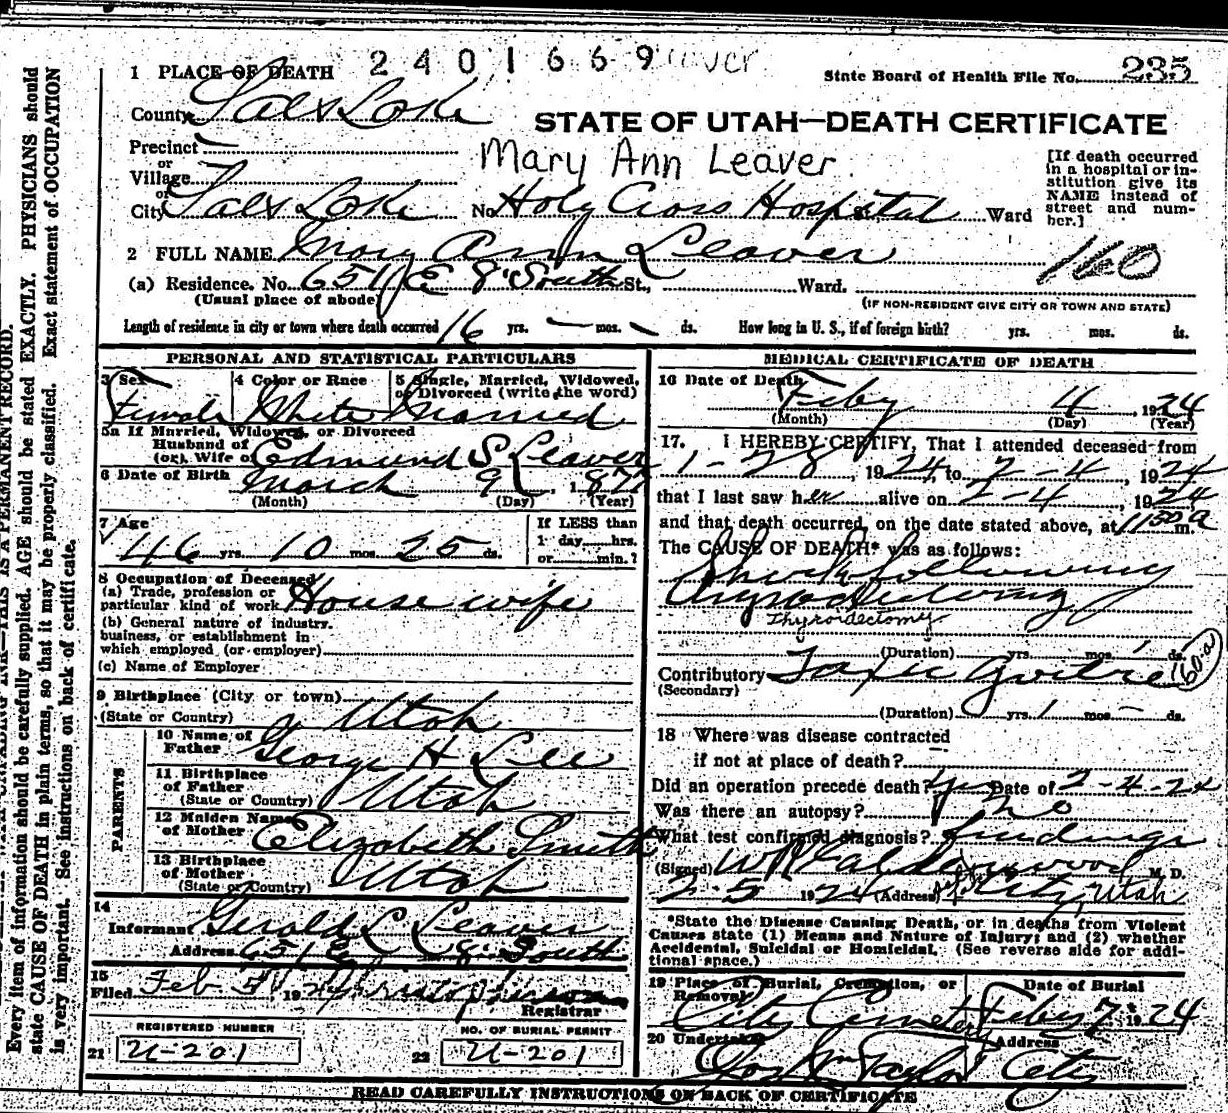 2401669 Leaver
1 PLACE OF DEATH
State Board of Health File No. 235
County Salt Lake
STATE OF UTAH—DEATH CERTIFICATE
Precinct
Mary Ann Leaver
or
Village
or
City Salt Lake No. Holy Cross Hospital Ward
[If death occurred
in a hospital or in-
stitution give its
NAME instead of
street and num-
ber.]
2 FULL NAME Mary Ann Leaver
160
(a) Residence. No. 651 E 8 South St., Ward.
(Usual place of abode)
(IF NON-RESIDENT GIVE CITY OR TOWN AND STATE)
Length of residence in city or town where death occurred 16 yrs. — mos. — ds. How long in U. S., if of foreign birth? yrs. mos. ds.
PERSONAL AND STATISTICAL PARTICULARS
3 Sex 4 Color or Race 5 Single, Married, Widowed,
or Divorced (write the word)
Female White Married
5a If Married, Widowed, or Divorced
Husband of
(or) Wife of Edmund S Leaver
6 Date of Birth March 9, 1877
(Month) (Day) (Year)
7 Age
46 yrs. 10 mos. 25 ds.
If LESS than
1 day, hrs.
or min.?
8 Occupation of Deceased
(a) Trade, profession or
particular kind of work House wife
(b) General nature of industry,
business, or establishment in
which employed (or employer)
(c) Name of Employer
9 Birthplace (City or town)
(State or Country) Utah
PARENTS
10 Name of
Father George H Lee
11 Birthplace
of Father
(State or Country) Utah
12 Maiden Name
of Mother Elizabeth Smith
13 Birthplace
of Mother
(State or Country) Utah
14
Informant Gerold L Leaver
Address 651 E 8 South
15
Filed Feb 5, 1924
Registrar
REGISTERED NUMBER
21 U-201
NO. OF BURIAL PERMIT
22 U-201
MEDICAL CERTIFICATE OF DEATH
16 Date of Death
Feby 4, 1924
(Month) (Day) (Year)
17. I HEREBY CERTIFY, That I attended deceased from
1-28, 1924, to 2-4, 1924
that I last saw her alive on 2-4, 1924
and that death occurred, on the date stated above, at 1130 a m.
The CAUSE OF DEATH* was as follows:
Shock following
Thyroidectomy
(Duration) yrs. mos. ds.
Contributory Toxic Goitre 60-a
(Secondary)
(Duration) 0 yrs. 1 mos. — ds.
18 Where was disease contracted
if not at place of death?
Did an operation precede death? Yes Date of 2-4-24
Was there an autopsy? no
What test confirmed diagnosis? findings
(Signed) M. D.
2-5 1924 (Address) City, Utah
*State the Disease Causing Death, or in deaths from Violent
Causes state (1) Means and Nature of Injury; and (2) whether
Accidental, Suicidal or Homicidal. (See reverse side for addi-
tional space.)
19 Place of Burial, Cremation, or
Removal
City Cemetery
Date of Burial
Feby 7 1924
20 Undertaker Address
Jos Wm Taylor City
READ CAREFULLY INSTRUCTIONS ON BACK OF CERTIFICATE
Every item of information should be carefully supplied. AGE should be stated EXACTLY. PHYSICIANS should
state CAUSE OF DEATH in plain terms, so that it may be properly classified. Exact statement of OCCUPATION
is very important. See instructions on back of certificate.
THIS IS A PERMANENT RECORD.